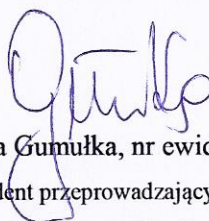 a Gumułka, nr ewic
lent przeprowadzający